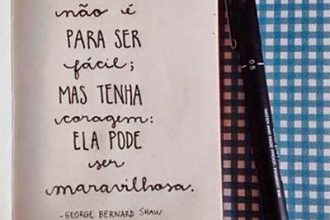 não é
PARA SER
fácil;
MAS TENHA
coragem:
ELA PODE
ser
maravilhosa.
-GEORGE BERNARD SHAW
0.5